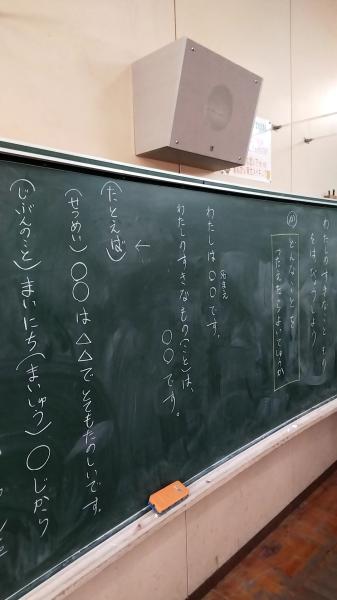 わたしのすきなこと・もの
をはっぴょうしよう
め
どんなことを
つたえたらよいでしょうか
なまえ
わたしは〇〇です。
わたしのすきなもの(こと)は、
〇〇です。
(たとえば)
(せつめい)〇〇は△△でとてもたのしいです。
(じぶんのこと)まいにち(まいしゅう)〇じから